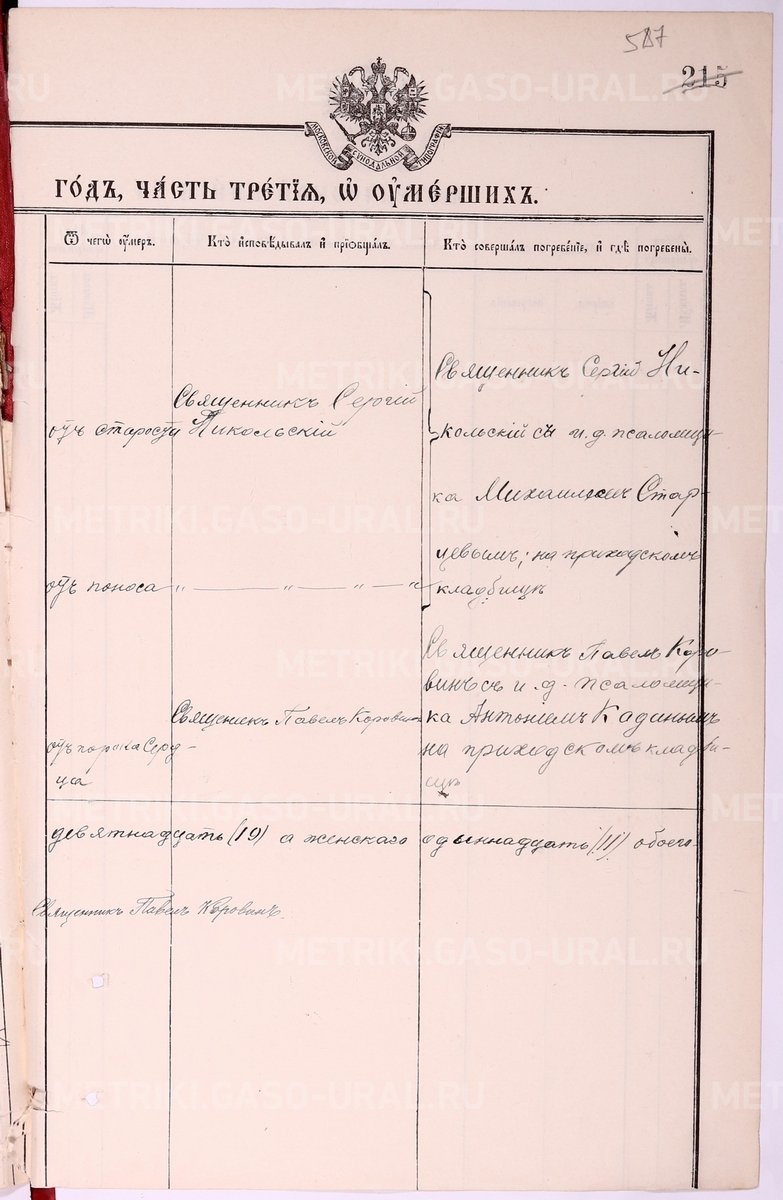 587
215
МОСКОВСКОЙ СѴНОДАЛЬНОЙ ТИПОГРАФІИ
ГО́ДЪ, ЧА́СТЬ ТРЕ́ТІѦ, Ѡ҆ ОУ҆МЕ́РШИХЪ.
Ѿ чегѡ̀ оу҆́меръ.
Кто̀ и҆сповѣ́дывалъ и҆ прїѡбща́лъ.
Кто̀ соверша́лъ погребе́нїе, и҆ гдѣ̀ погребены̀.
отъ старости
Священникъ Сергій
Никольскій
Священникъ Сергій Ни-
кольскій съ и. д. псаломщи-
ка Михаиломъ Стар-
цевымъ; на приходскомъ
кладбищѣ
отъ поноса
" — " — " — "
отъ порока серд-
ца
Священикъ Павелъ Коровинъ
Священникъ Павелъ Коро-
винъ съ и. д. псаломщи-
ка Антоніемъ
на приходскомъ кладби-
щѣ
девятнадцать (19) а женскаго одиннадцать (11) обоего
Священникъ Павелъ Коровинъ.
METRIKI.GASO-URAL.RU